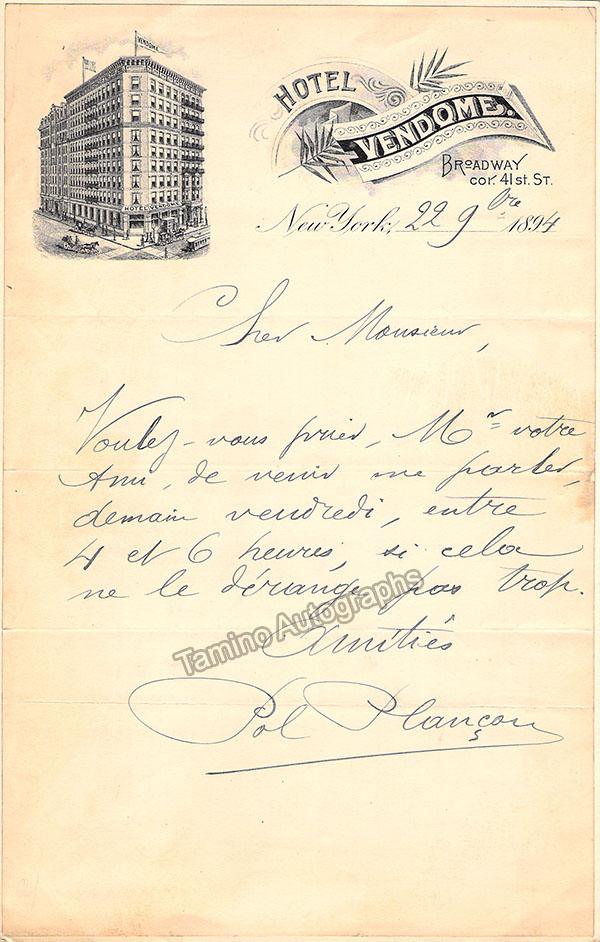 VENDOME
HOTEL
VENDOME.
BROADWAY
cor. 41st. ST.
New York, 22 9bre 1894
Cher Monsieur,
Voulez-vous prier, Mr votre
Ami, de venir me parler,
demain vendredi, entre
4 et 6 heures, si cela
ne le dérange pas trop.
Amitiés
Pol Plançon
Tamino Autographs